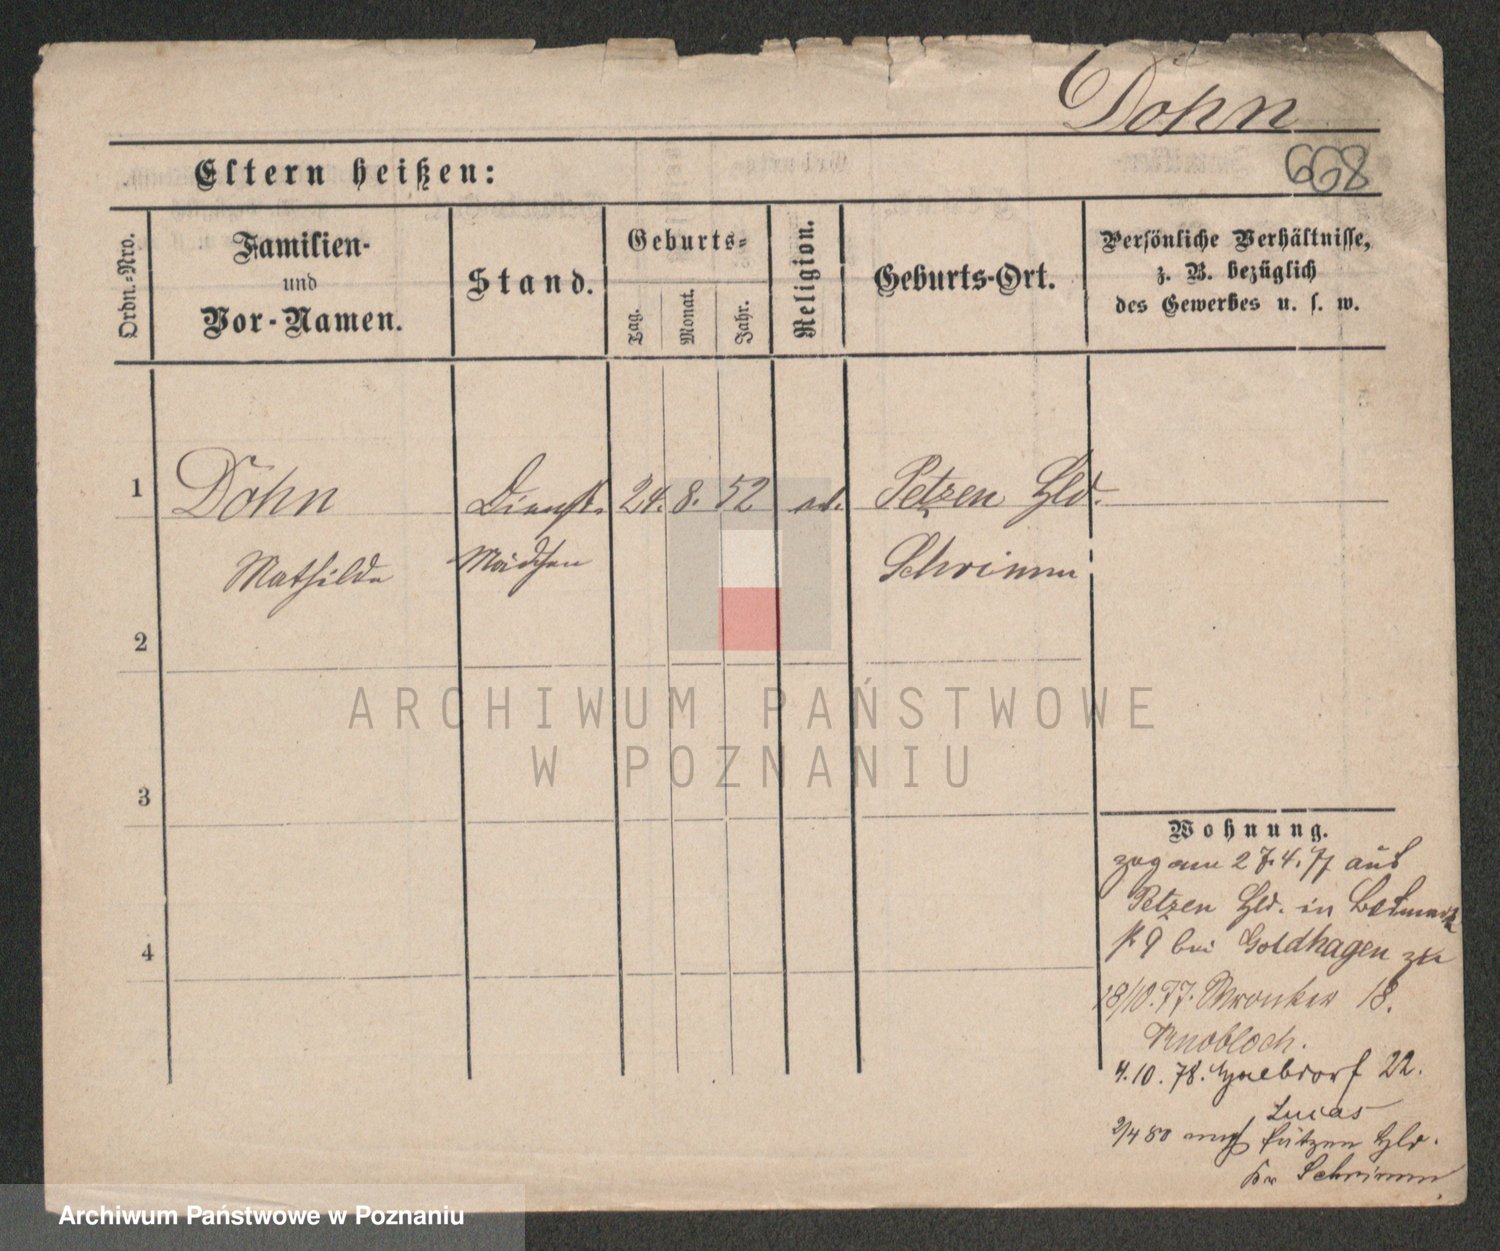 Döhn
668
Eltern heißen:
Ordn.-Nro.
Familien-
und
Vor-Namen.
Stand.
Geburts-
Tag.
Monat.
Jahr.
Religion.
Geburts-Ort.
Persönliche Verhältnisse,
z. B. bezüglich
des Gewerbes u. s. w.
1 Döhn Dienst- 24. 8. 52 Petzen Hld.
Mathilde Mädchen Schrimm
2
3
4
ARCHIWUM PAŃSTWOWE
W POZNANIU
Wohnung.
zog am 27.4.77 aus
Petzen Hld. in
9 bei Goldhagen zu
18/10.77. Wronker 18.
Knobloch.
4.10.78. 22.
Lucas
2/4 80 nach Hld.
Kr Schrimm
Archiwum Państwowe w Poznaniu